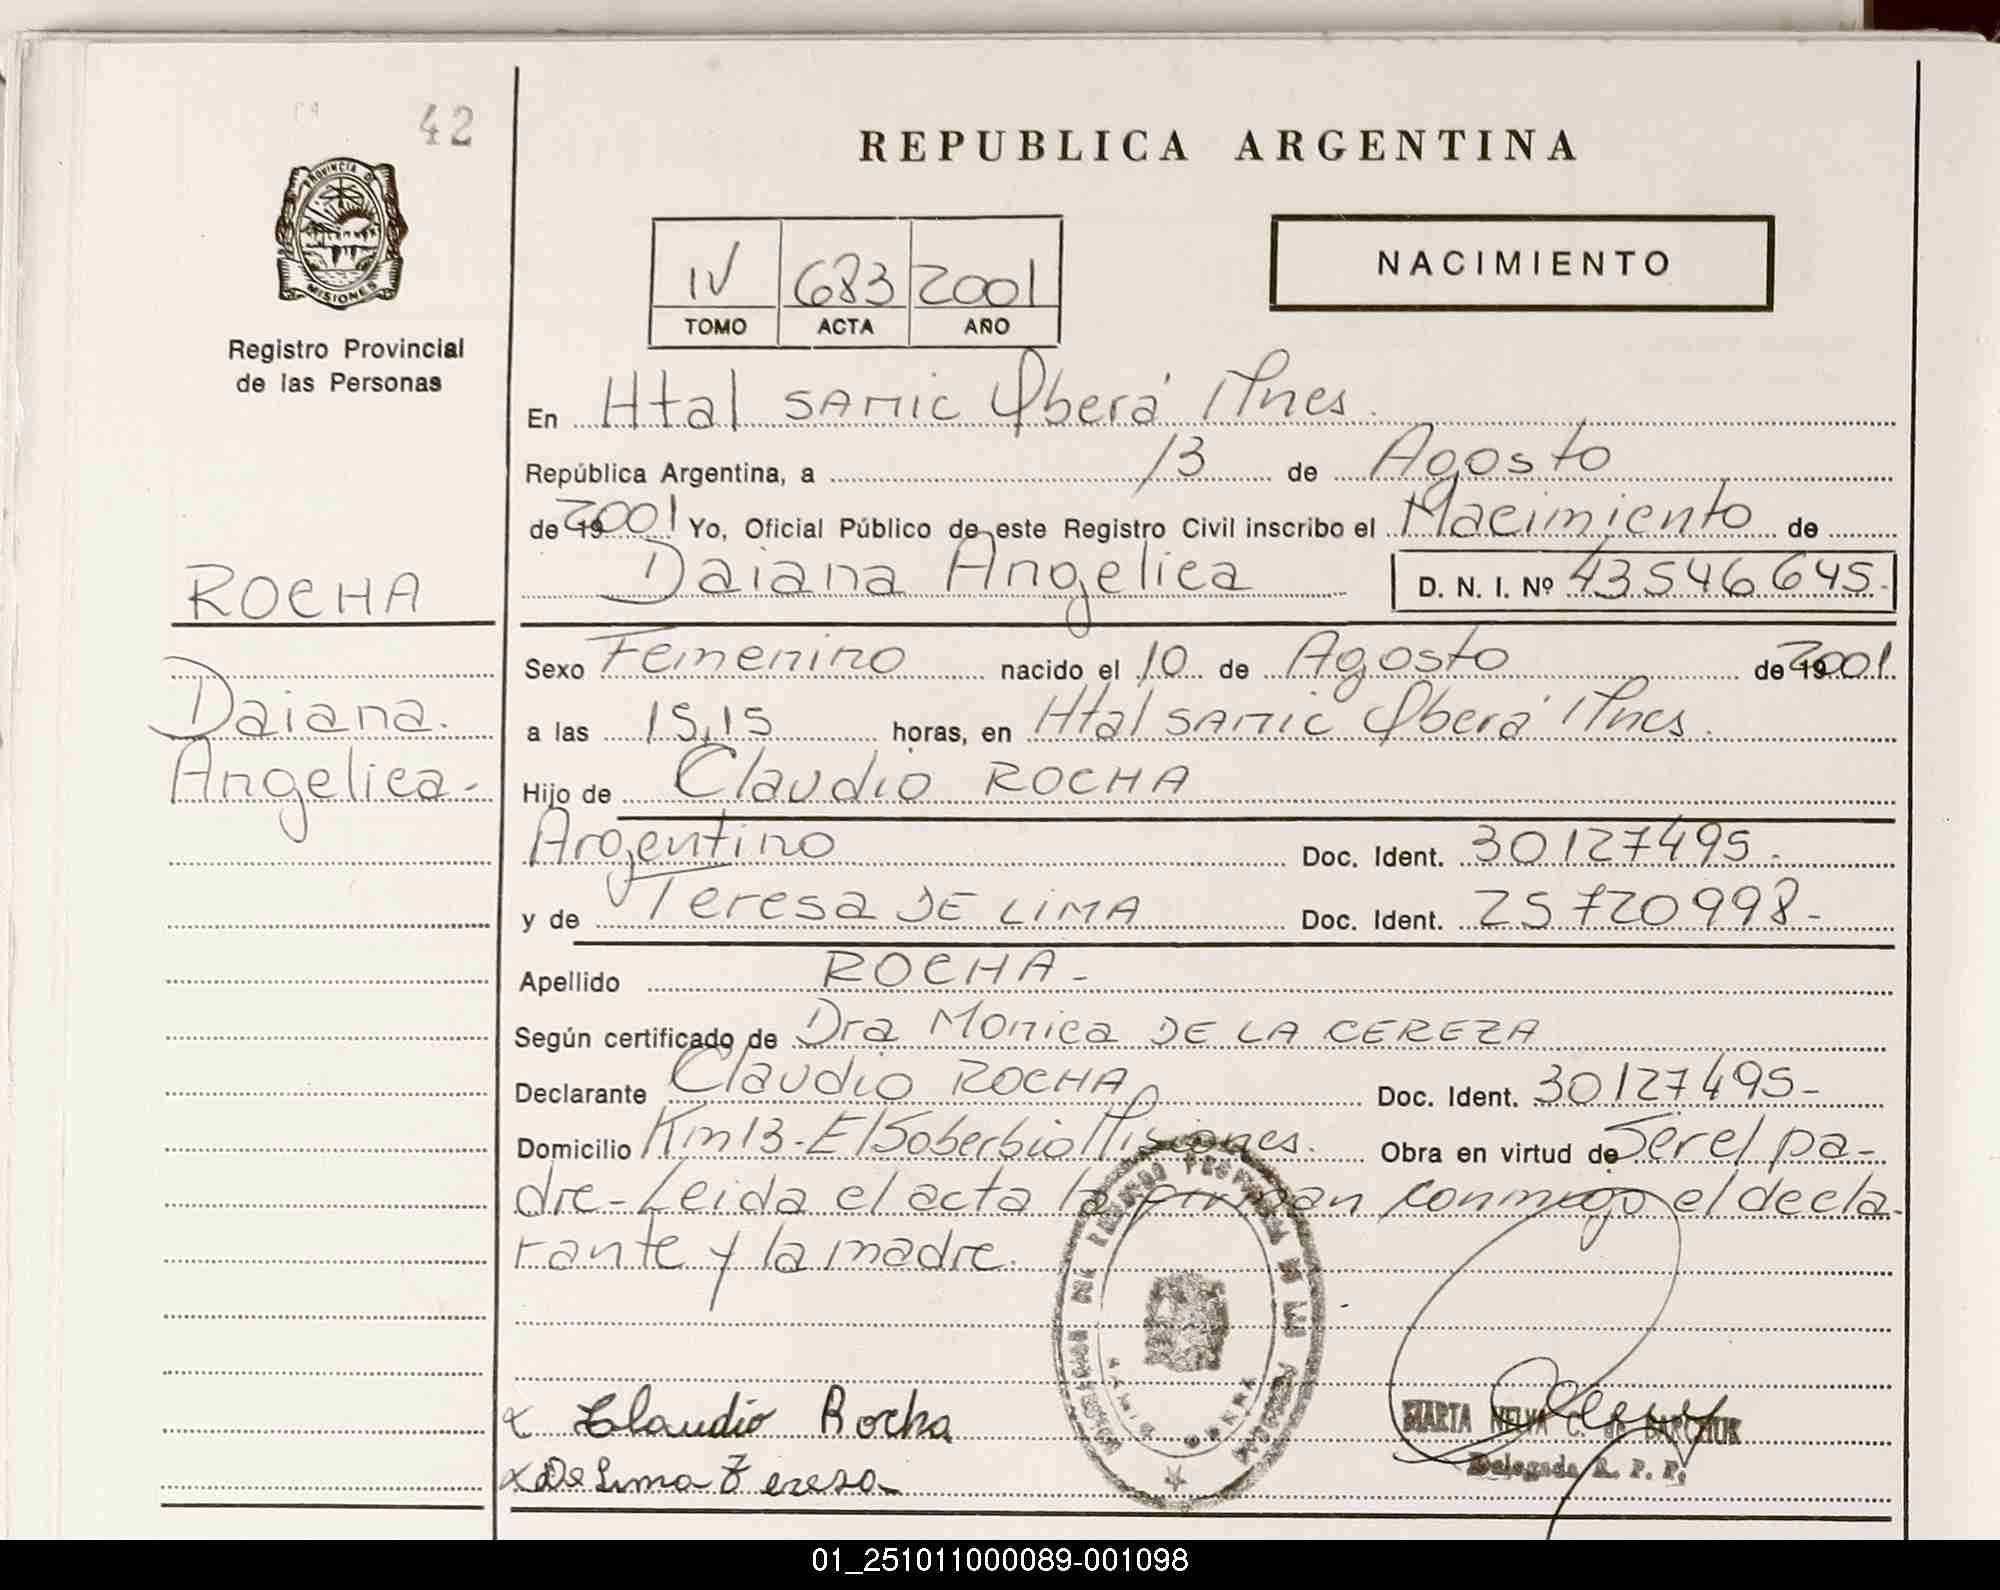 42
REPUBLICA ARGENTINA
PROVINCIA D
MISIONES
Registro Provincial
de las Personas
IV 683 2001
TOMO ACTA AÑO
NACIMIENTO
En Htal SAMIC Oberá Mnes.
República Argentina, a 13 de Agosto
de 19 2001 Yo, Oficial Público de este Registro Civil inscribo el Nacimiento de
Daiana Angelica D. N. I. Nº 43546645-
ROCHA
Daiana
Angelica-
Sexo Femenino nacido el 10 de Agosto de 19 2001
a las 15,15 horas, en Htal SAMIC Oberá Mnes.
Hijo de Claudio ROCHA
Argentino Doc. Ident. 30127495-
y de Teresa DE LIMA Doc. Ident. 25720998-
Apellido ROCHA-
Según certificado de Dra Monica DE LA CEREZA
Declarante Claudio ROCHA Doc. Ident. 30127495-
Domicilio Km13-El Soberbio Misiones. Obra en virtud de Ser el pa-
dre-Leida el acta la firman conmigo el decla-
rante y la madre.
x Claudio Rocha
x De Lima Teresa
MARTA NELVA C. de BARCHUK
Delegada R. P. P.
01_251011000089-001098